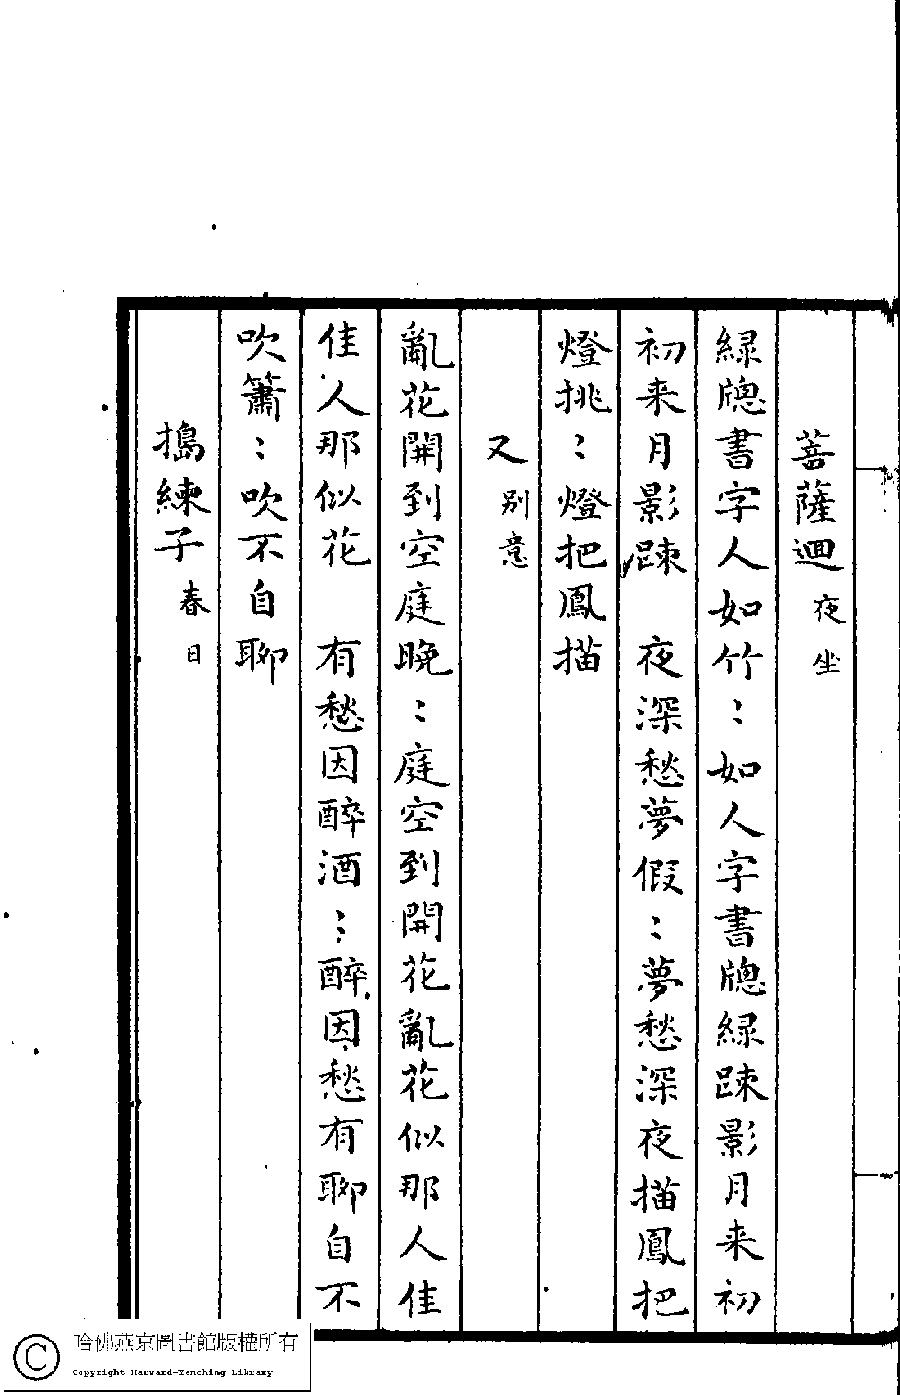 菩薩迴 夜坐
緑牕書字人如竹〻如人字書牕緑踈影月来初
初来月影踈 夜深愁夢假〻夢愁深夜描鳳把
燈挑〻燈把鳳描
又 别意
亂花開到空庭晚〻庭空到開花亂花似那人佳
佳人那似花 有愁因醉酒〻醉因愁有聊自不
吹簫〻吹不自聊
搗練子 春日
哈佛燕京圖書館版權所有
Copyright Harvard-Yenching Library